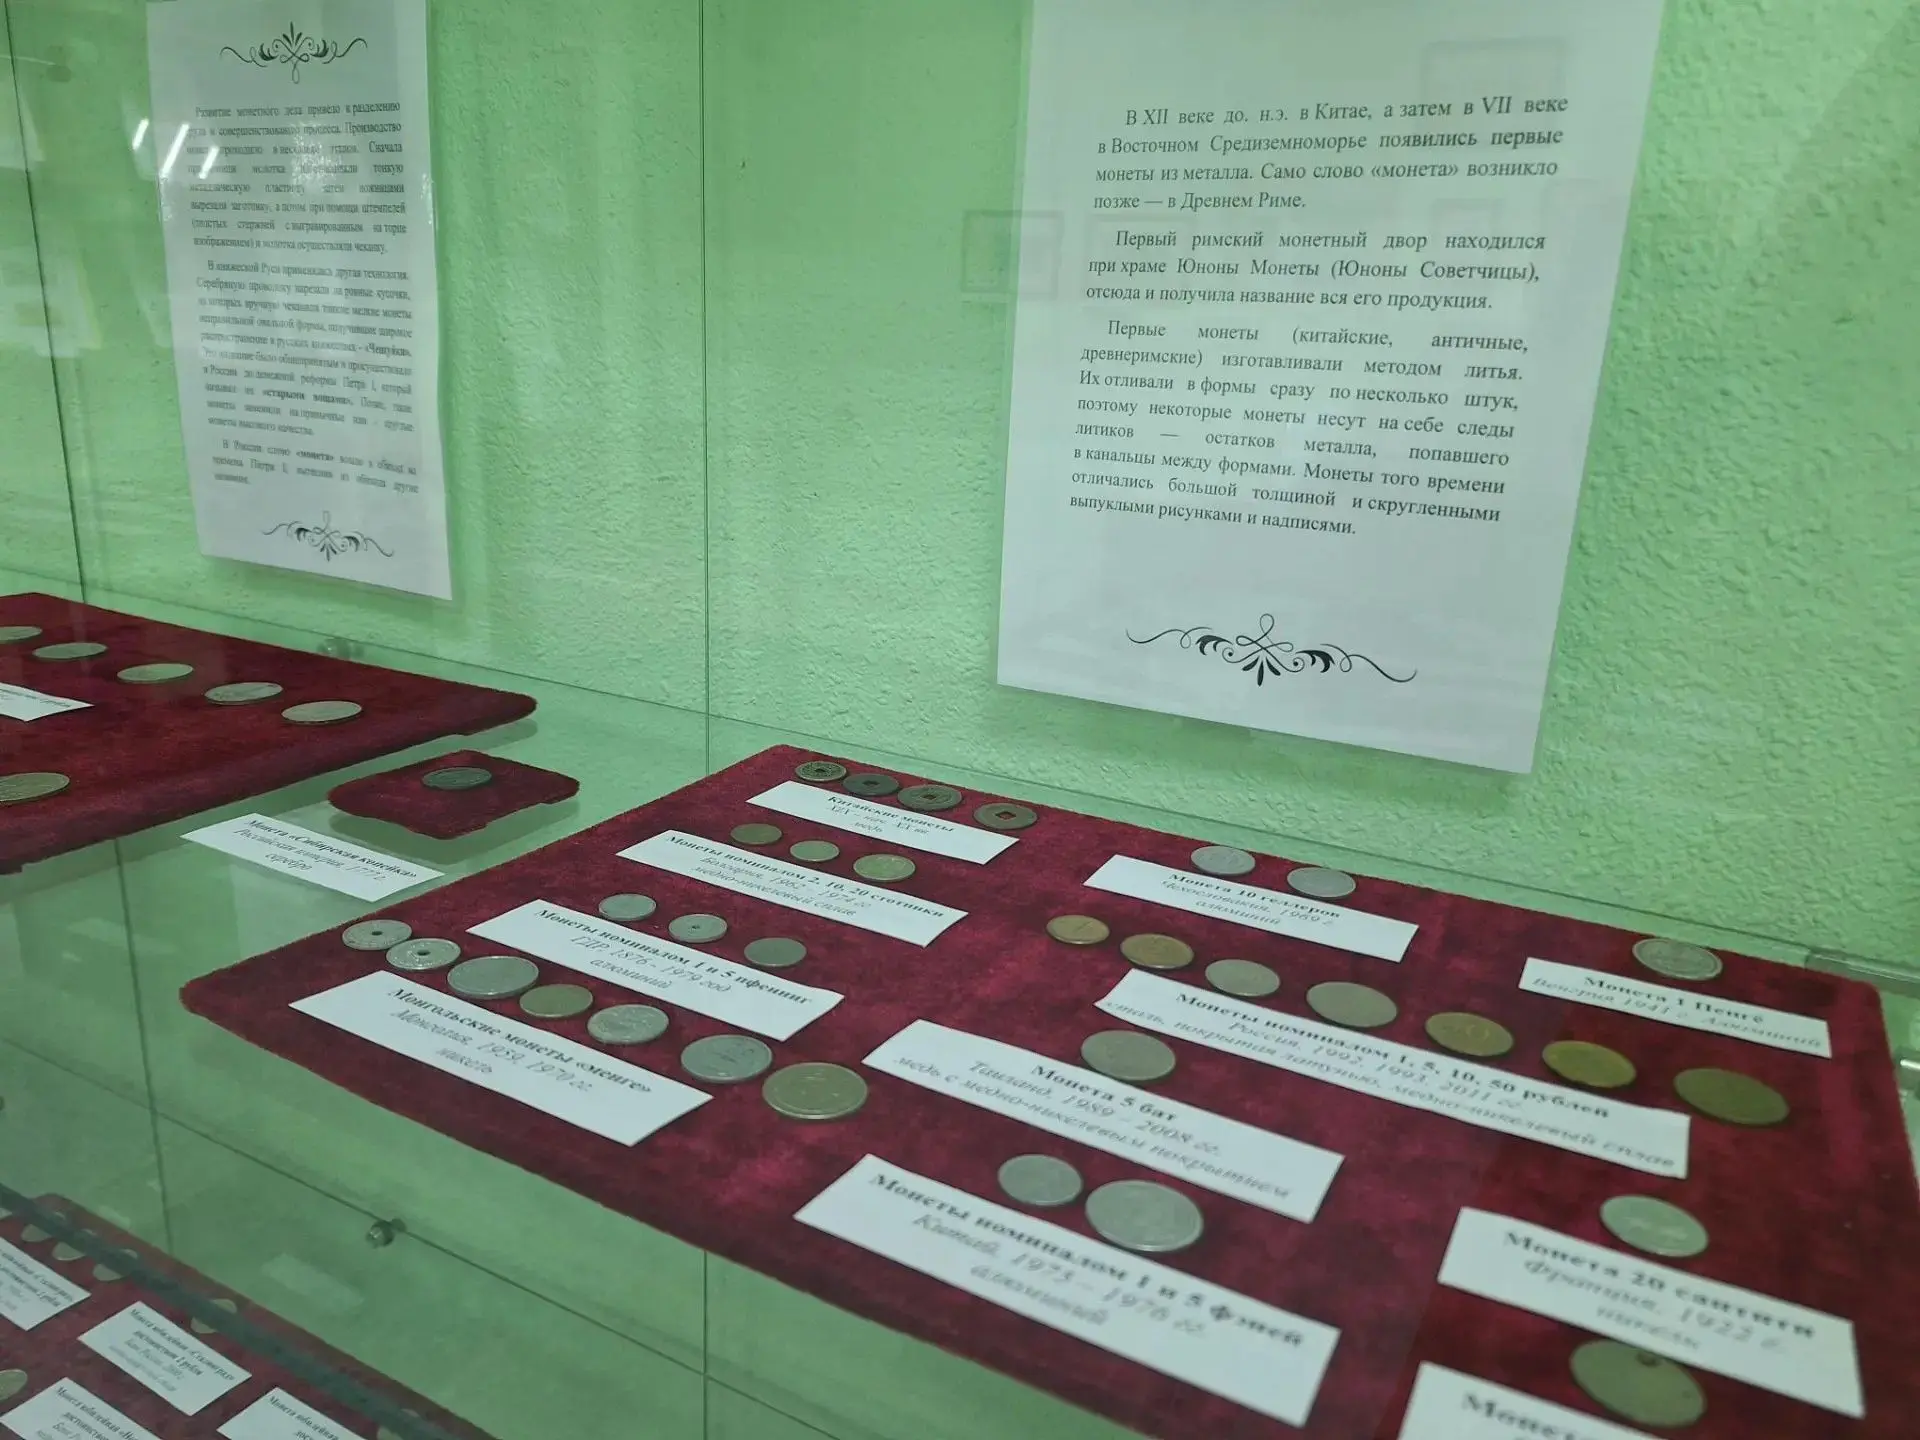 Развитие монетного дела привело к разделению
труда и совершенствованию процесса. Производство
монет проходило в несколько этапов. Сначала
при помощи молотка тонкую
металлическую пластину, затем ножницами
вырезали заготовку, а потом при помощи штемпелей
(толстых стержней с выгравированным на торце
изображением) и молотка осуществляли чеканку.
В княжеской Руси применялась другая технология.
Серебряную проволоку нарезали на ровные кусочки,
из которых вручную чеканили тонкие мелкие монеты
неправильной овальной формы, получившие широкое
распространение в русских княжествах - «Чешуйки».
Это название было общепринятым и просуществовало
в России до денежной реформы Петра I, который
называл их «старыми вшами». Позже, такие
монеты заменили на привычные нам - круглые
монеты высокого качества.
В России слово «монета» вошло в обиход во
времена Петра I, вытеснив из обихода другие
названия.
В XII веке до. н.э. в Китае, а затем в VII веке
в Восточном Средиземноморье появились первые
монеты из металла. Само слово «монета» возникло
позже — в Древнем Риме.
Первый римский монетный двор находился
при храме Юноны Монеты (Юноны Советчицы),
отсюда и получила название вся его продукция.
Первые монеты (китайские, античные,
древнеримские) изготавливали методом литья.
Их отливали в формы сразу по несколько штук,
поэтому некоторые монеты несут на себе следы
литиков — остатков металла, попавшего
в канальцы между формами. Монеты того времени
отличались большой толщиной и скругленными
выпуклыми рисунками и надписями.
Монета «Сибирская копейка»
Российская империя, 1777 г.
серебро
Китайские монеты
XIX - нач. XX вв.
медь
Монеты номиналом 2, 10, 20 стотинки
Болгария, 1962 - 1974 гг.
медно-никелевый сплав
Монеты номиналом 1 и 5 пфенниг
ГДР, 1876 - 1979 год
алюминий
Монгольские монеты «менге»
Монголия, 1959, 1970 гг.
никель
Монета 10 геллеров
Чехословакия, 1969 г.
алюминий
Монета 1 Пенгё
Венгрия 1941 г. Алюминий
Монеты номиналом 1, 5, 10, 50 рублей
Россия, 1992, 1993, 2011 гг.
сталь, покрытая латунью, медно-никелевый сплав
Монета 5 бат
Таиланд, 1989 - 2008 гг.
медь с медно-никелевым покрытием
Монеты номиналом 1 и 5 Фэней
Китай, 1975 - 1976 гг.
алюминий
Монета 20 сантити
Франция, 1922 г.
никель
Монета юбилейная «Сталинград»
достоинством 2 рубля
Монета юбилейная